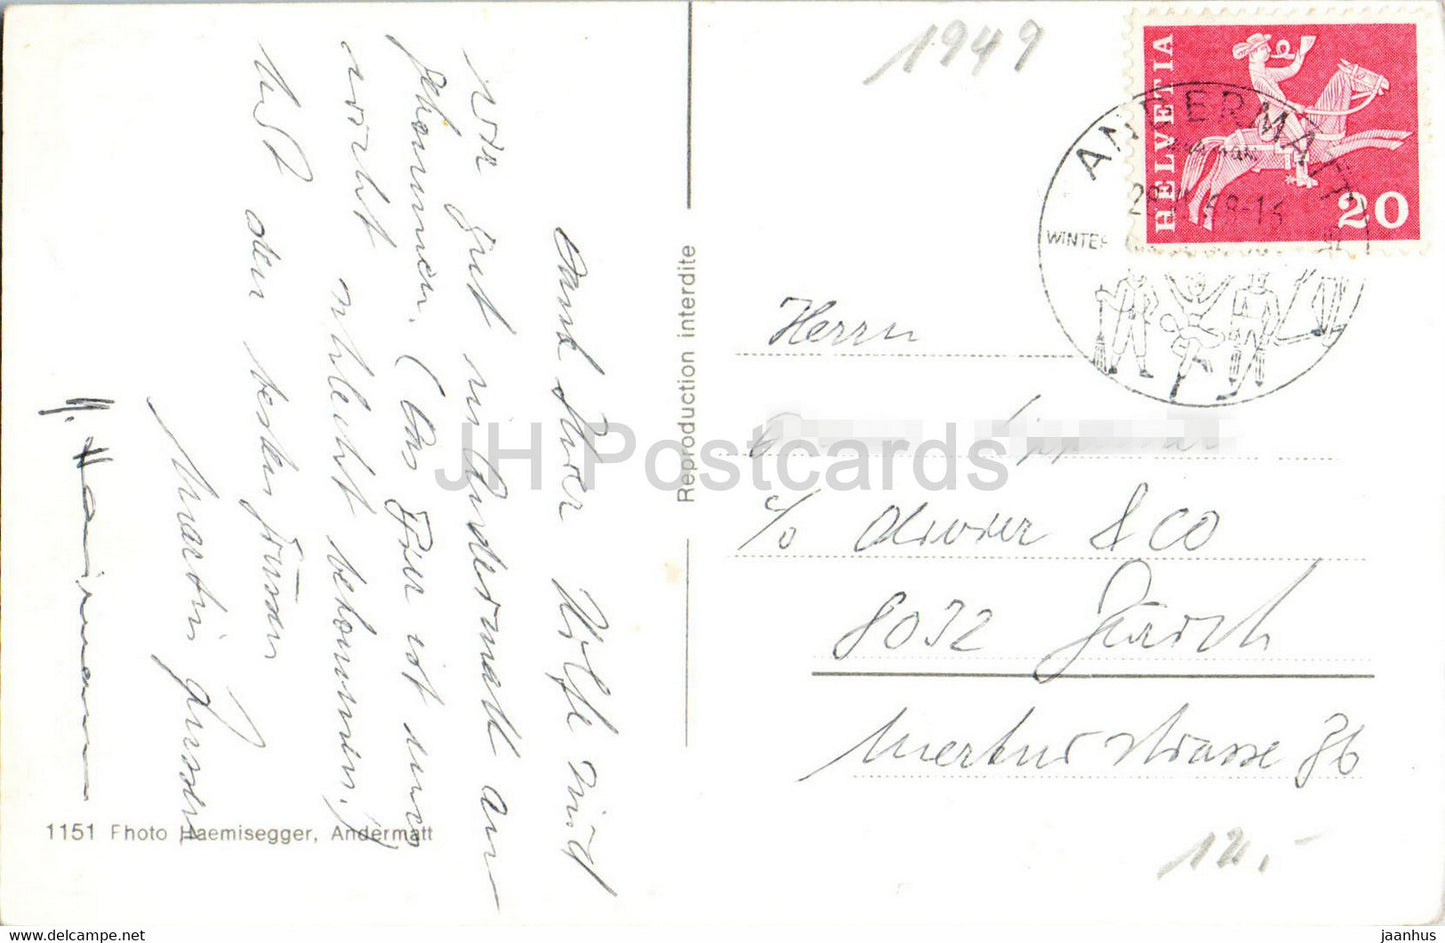 Dank Ihrer Hilfe sind
wir gut in Andermatt an
gekommen. (Das Bier ist uns
nicht schlecht bekommen!)
Mit den besten Grüssen
Martin
H. Hairmann
1151 Fhoto Haemisegger, Andermatt
Reproduction interdite
1949
HELVETIA
20
ANDERMATT
WINTER
Herrn
c/o Olivier & CO
8032 Zürich
Merkurstrasse 36
12.-
JH Postcards
www.delcampe.net
jaanhus